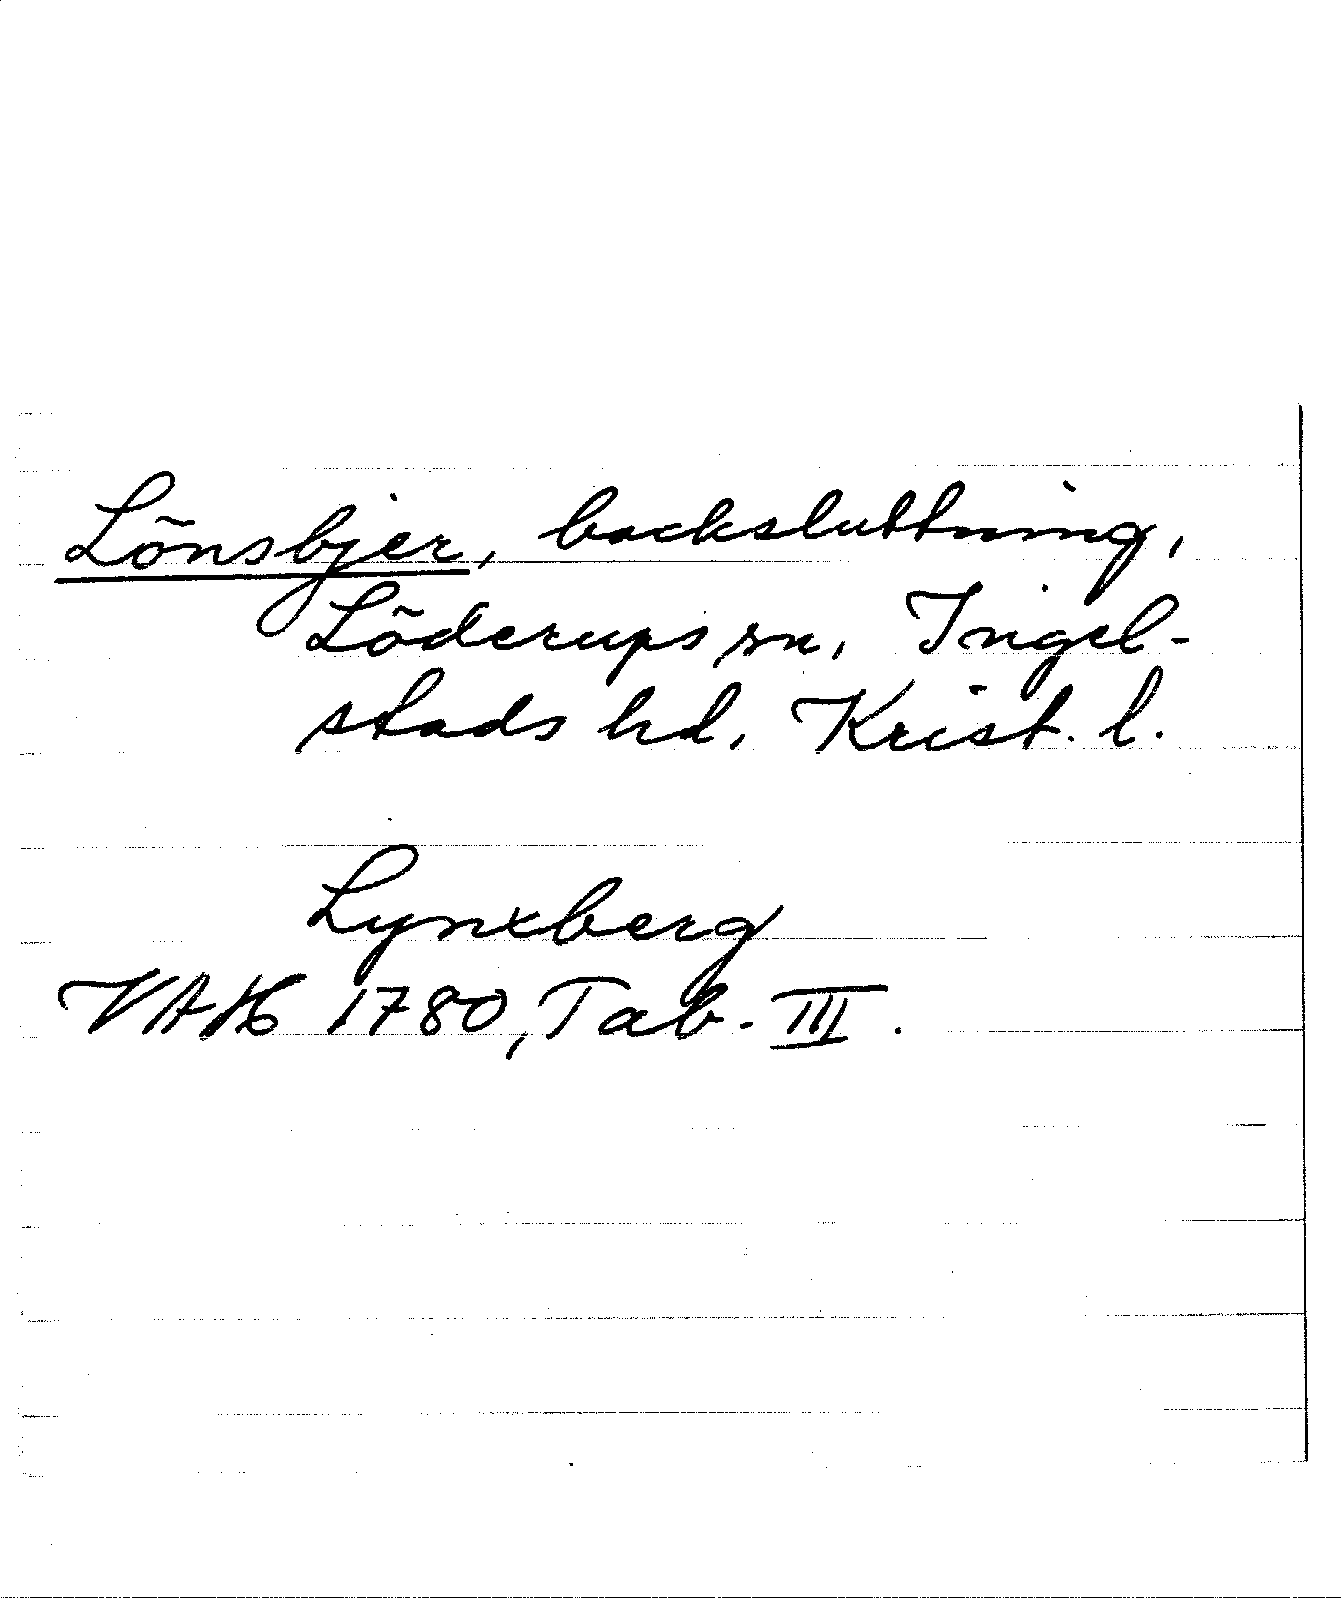 Lönsbjer, backsluttning,
Löderups sn, Ingel-
stads hd, Krist. l.
Lynxberg
VAH 1780, Tab. III.